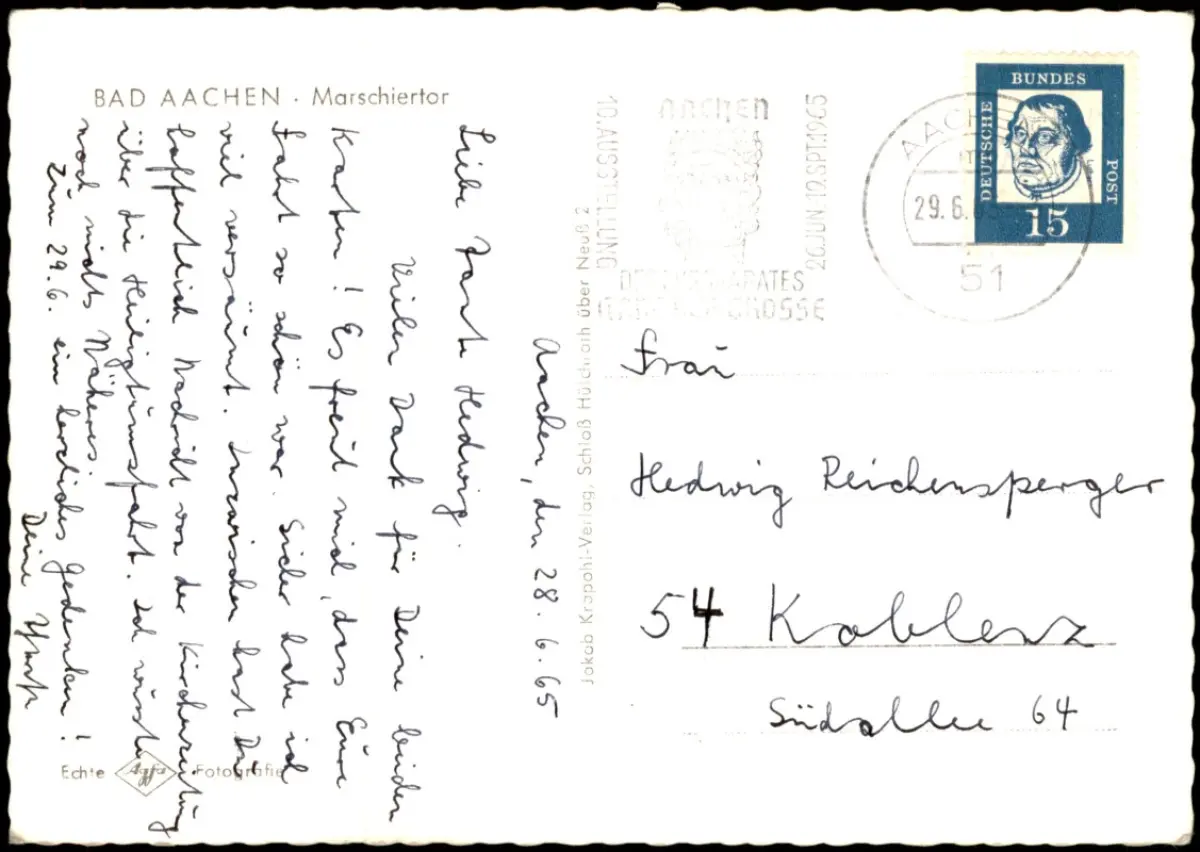 BAD AACHEN · Marschiertor
Aachen, den 28.6.65
Liebe Tante Hedwig.
Vielen Dank für Deine beiden
Karten! Es freut mich, dass Eure
Fahrt so schön war. Sicher habe ich
viel versäumt. Inzwischen hast Du
hoffentlich Nachricht von der Kirchenzeitung
über die Heiligtumsfahrt. Ich wusste
noch nichts Näheres.
Zum 29.6. ein herzliches Gedenken!
Deine
Echte Agfa Fotografie
Jakob Krapohl-Verlag, Schloß Hülchrath über Neuß 2
AACHEN
10. AUSSTELLUNG
26. JUNI-19. SPT. 1965
DES EUROPARATES
KARL DER GROSSE
AACHEN
29.6.65
51
DEUTSCHE
BUNDES
POST
15
Frau
Hedwig Reichensperger
54 Koblenz
Südallee 64